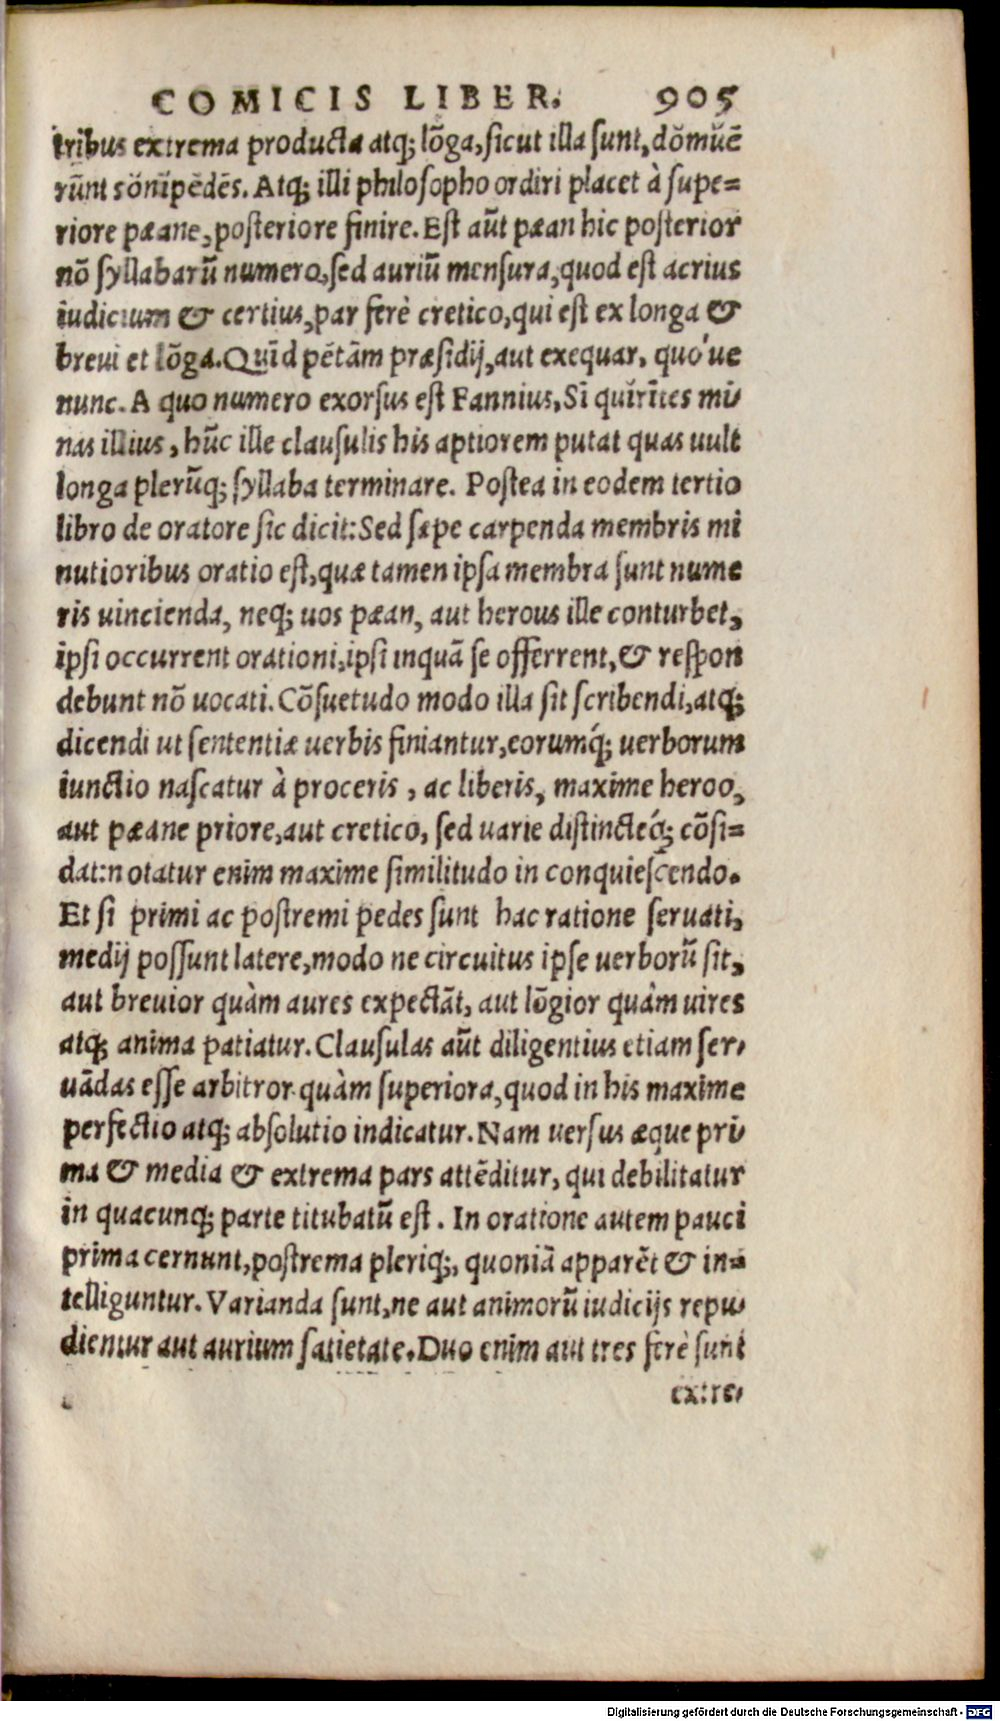 COMICIS LIBER. 905
tribus extrema producta atq; lõga, sicut illa sunt, dŏmŭē
rūnt sŏnĭpēdēs. Atq; illi philosopho ordiri placet à supe=
riore pæane, posteriore finire. Est aũt pæan hic posterior
nõ syllabarũ numero, sed auriũ mensura, quod est acrius
iudicium & certius, par ferè cretico, qui est ex longa &
breui et lõga. Quīd pĕtām præsidij, aut exequar, quó ue
nunc. A quo numero exorsus est Fannius, Sī quĭrītes mi
nas illius, hũc ille clausulis his aptiorem putat quas uult
longa plerũq; syllaba terminare. Postea in eodem tertio
libro de oratore sic dicit: Sed sæpe carpenda membris mi
nutioribus oratio est, quæ tamen ipsa membra sunt nume
ris uincienda, neq; uos pæan, aut herous ille conturbet,
ipsi occurrent orationi, ipsi inquã se offerrent, & respon
debunt nõ uocati. Cõsuetudo modo illa sit scribendi, atq;
dicendi ut sententiæ uerbis finiantur, eorumq́; uerborum
iunctio nascatur à proceris, ac liberis, maxime heroo,
aut pæane priore, aut cretico, sed uarie distincteq́; cõsi=
dat: notatur enim maxime similitudo in conquiescendo.
Et si primi ac postremi pedes sunt hac ratione seruati,
medij possunt latere, modo ne circuitus ipse uerborũ sit,
aut breuior quàm aures expectãt, aut lõgior quàm uires
atq; anima patiatur. Clausulas aũt diligentius etiam ser
uãdas esse arbitror quàm superiora, quod in his maxime
perfectio atq; absolutio indicatur. Nam uersus æque pri
ma & media & extrema pars attẽditur, qui debilitatur
in quacunq; parte titubatũ est. In oratione autem pauci
prima cernunt, postrema pleriq;, quoniã apparẽt & in=
telliguntur. Varianda sunt, ne aut animorũ iudicijs repu
dientur aut aurium satietate. Duo enim aut tres ferè sunt
extre
Digitalisierung gefördert durch die Deutsche Forschungsgemeinschaft - DFG